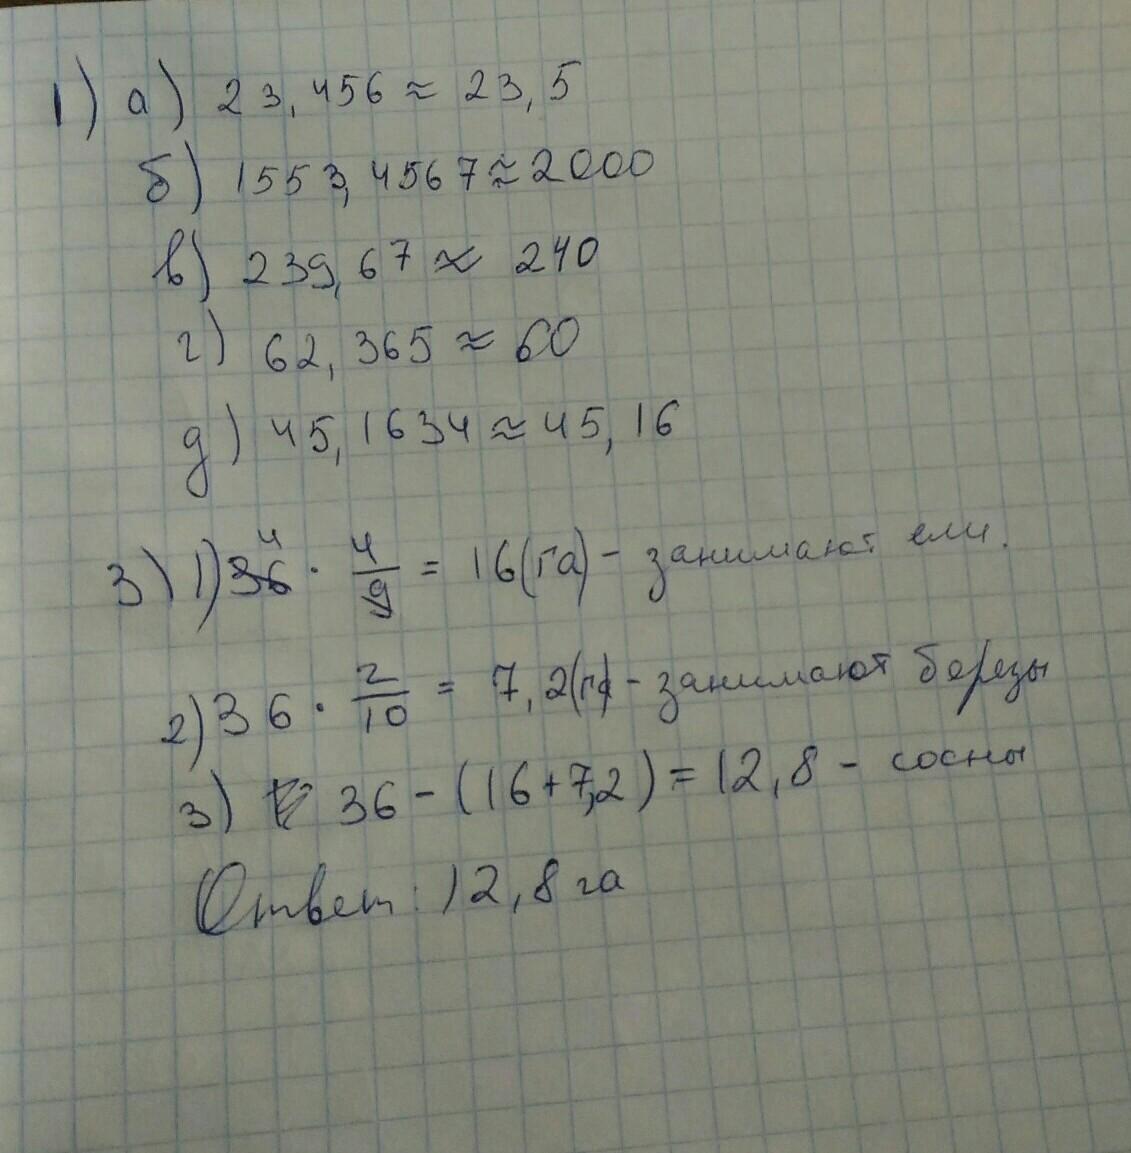 1) а) 23,456 ≈ 23,5
б) 1553,4567 ≈ 2000
в) 239,67 ≈ 240
г) 62,365 ≈ 60
д) 45,1634 ≈ 45,16
3) 1) 36 4 · 4/9 = 16(га) - занимают ели.
2) 36 · 2/10 = 7,2(га) - занимают березы
3) 36 - (16+7,2) = 12,8 - сосны
Ответ: 12,8 га